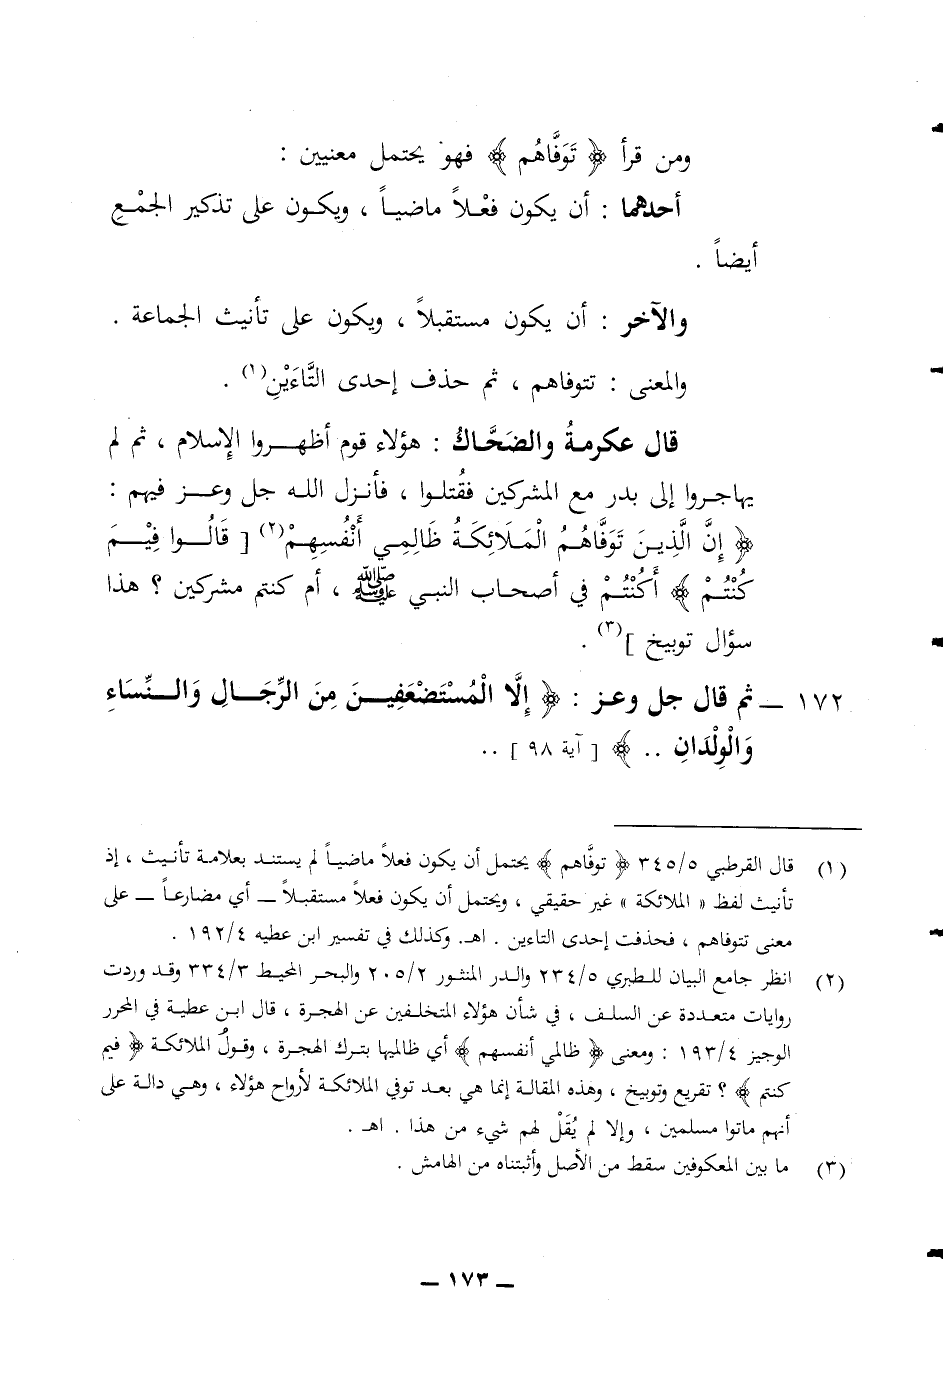 ومن قرأ ﴿ تَوَفَّاهُم ﴾ فهو يحتمل معنيين :
أحدهما : أن يكون فعْلاً ماضياً ، ويكون على تذكير الجمْع
أيضاً .
والآخر : أن يكون مستقبلاً ، ويكون على تأنيث الجماعة .
والمعنى : تتوفاهم ، ثم حذف إحدى التَّاءَيْنِ(١) .
قال عكرمةُ والضَحَّاكُ : هؤلاء قوم أظهروا الإسلام ، ثم لم
يهاجروا إلى بدر مع المشركين فقُتلوا ، فأنزل الله جل وعز فيهم :
﴿ إِنَّ الَّذِينَ تَوَفَّاهُمُ الْمَلَائِكَةُ ظَالِمِي أَنْفُسِهِمْ(٢) [ قَالُوا فِيْمَ
كُنْتُمْ ﴾ أَكُنْتُمْ في أصحاب النبي ﷺ ، أم كنتم مشركين ؟ هذا
سؤال توبيخ ](٣) .
١٧٢ ــ ثم قال جل وعز : ﴿ إِلَّا الْمُسْتَضْعَفِينَ مِنَ الرِّجَالِ وَالنِّسَاءِ
وَالْوِلْدَانِ .. ﴾ [ آية ٩٨ ] ..
(١) قال القرطبي ٣٤٥/٥ ﴿ توفَّاهم ﴾ يحتمل أن يكون فعلاً ماضياً لم يستند بعلامة تأنيث ، إذ
تأنيث لفظ « الملائكة » غير حقيقي ، ويحتمل أن يكون فعلاً مستقبلاً ــ أي مضارعاً ــ على
معنى تتوفاهم ، فحذفت إحدى التاءين . اهـ. وكذلك في تفسير ابن عطيه ١٩٢/٤ .
(٢) انظر جامع البيان للطبري ٢٣٤/٥ والدر المنثور ٢٠٥/٢ والبحر المحيط ٣٣٤/٣ وقد وردت
روايات متعددة عن السلف ، في شأن هؤلاء المتخلفين عن الهجرة ، قال ابن عطية في المحرر
الوجيز ١٩٣/٤ : ومعنى ﴿ ظالمي أنفسهم ﴾ أي ظالميها بترك الهجرة ، وقولُ الملائكة ﴿ فيم
كنتم ﴾ ؟ تقريع وتوبيخ ، وهذه المقالة إنما هي بعد توفي الملائكة لأرواح هؤلاء ، وهي دالة على
أنهم ماتوا مسلمين ، وإلا لم يُقَلْ لهم شيء من هذا . اهـ .
(٣) ما بين المعكوفين سقط من الأصل وأثبتناه من الهامش .
ــ ١٧٣ ــ